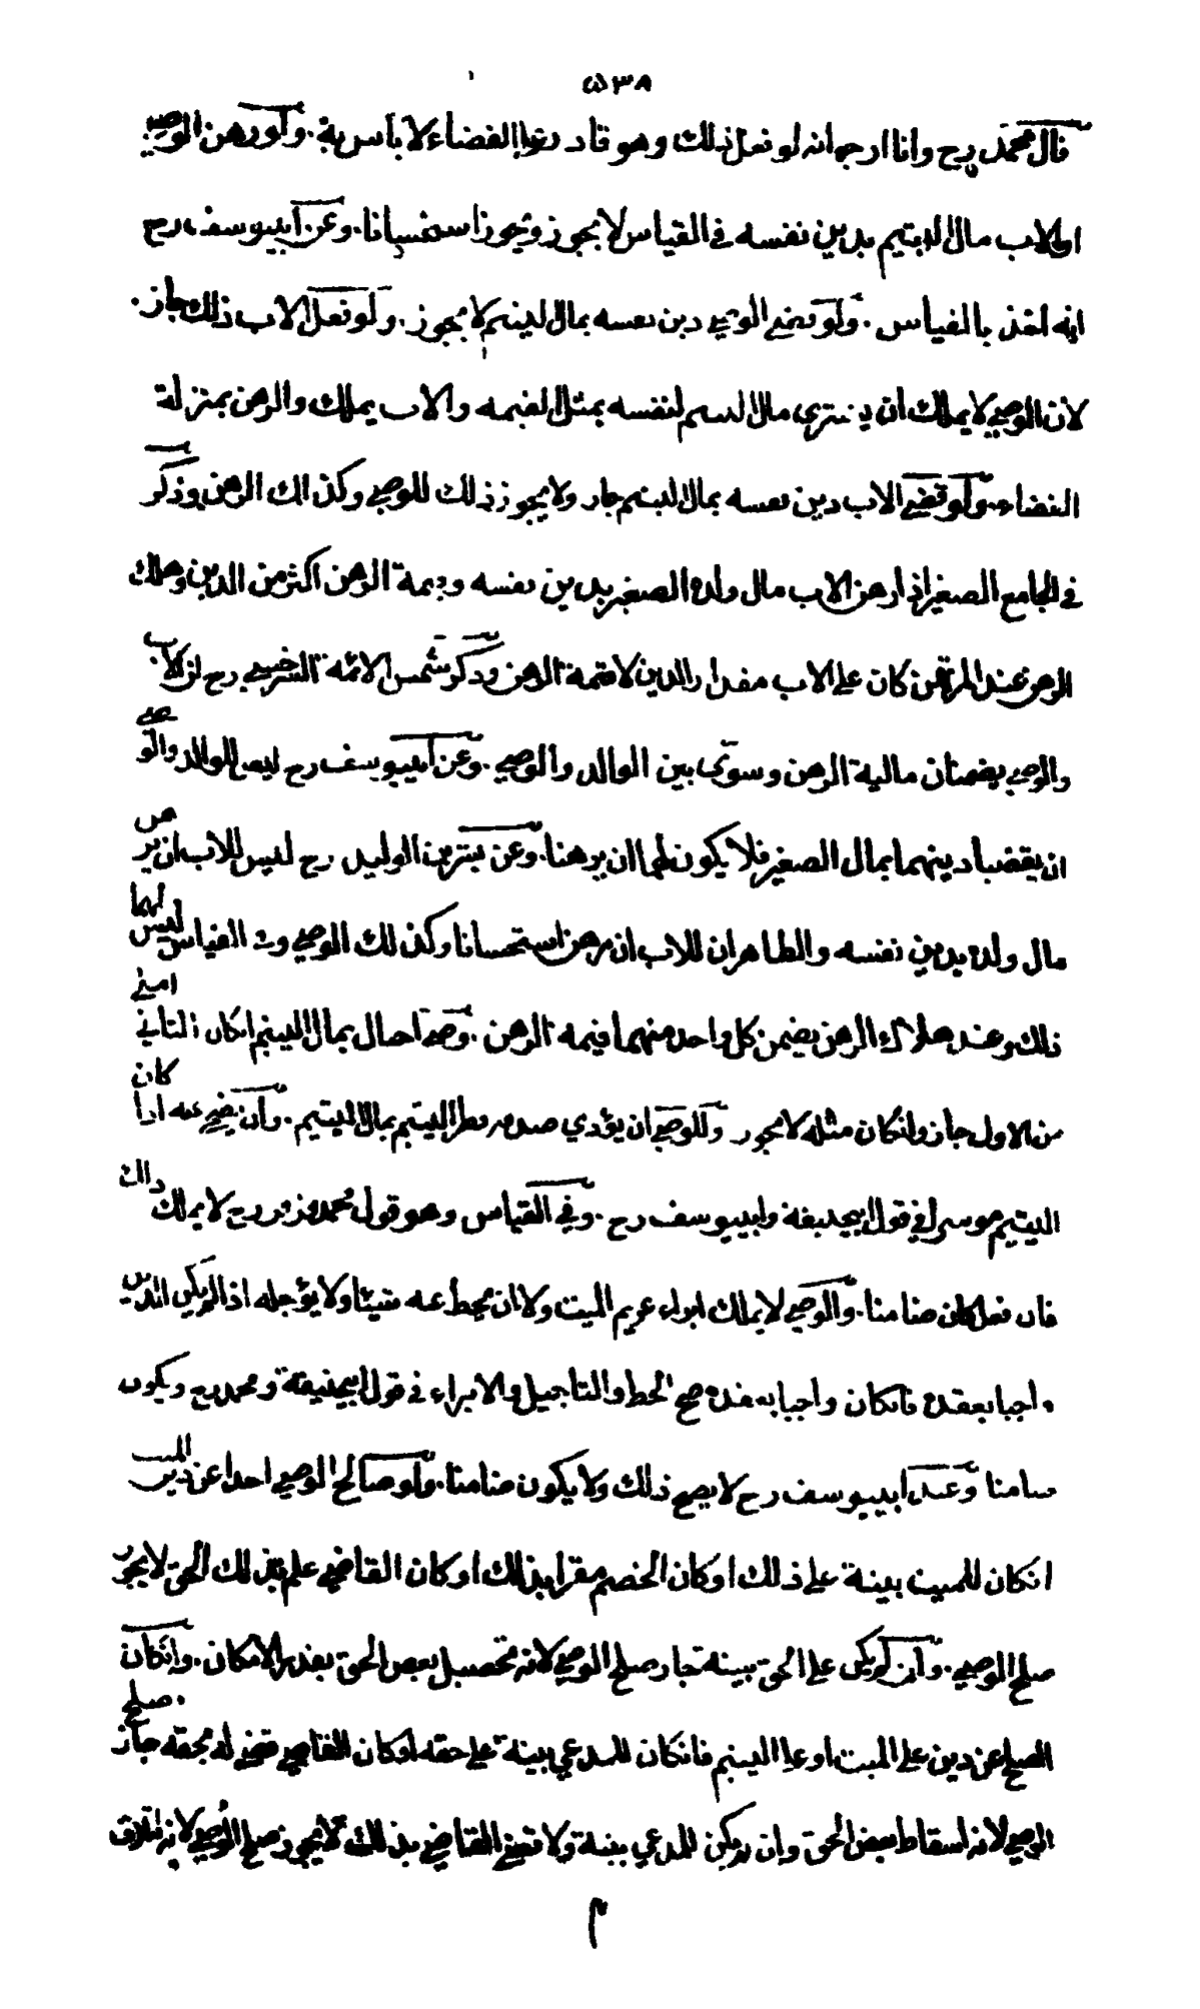 ٥٣٨
قال محمد رح وانا ارجو انه لو فعل ذلك وهو قادر على القضاء لا بأس به . ولو رهن الوصي
او الاب مال اليتيم بدين نفسه في القياس لا يجوز ويجوز استحسانا . وعن ابييوسف رح
انه اخذ بالقياس . ولو قضى الوصي دين نفسه بمال اليتيم لا يجوز . ولو فعل الاب ذلك جاز .
لان الوصي لا يملك ان يشتري مال اليتيم لنفسه بمثل القيمه والاب يملك والرهن بمنزلة
القضاء . ولو قضى الاب دين نفسه بمال اليتيم جاز ولا يجوز ذلك للوصي وكذالك الرهن وذكر
في الجامع الصغير اذا رهن الاب مال ولده الصغير بدين نفسه وقيمة الرهن اكثر من الدين وهلك
الرهن عند المرتهن كان على الاب مقدار الدين لا قيمة الرهن وذكر شمس الائمة السرخسي رح ان الاب
والوصي يضمنان مالية الرهن وسوى بين الوالد والوصي . وعن ابييوسف رح ليس للوالد والوصي
ان يقضيا دينهما بمال الصغير فلا يكون لهما ان يرهنا . وعن بشر بن الوليد رح ليس للاب ان يرهن
مال ولده بدين نفسه والظاهر ان للاب ان يرهن استحسانا وكذلك الوصي وفي القياس ليس لهما
ذلك وعند هلاك الرهن يضمن كل واحد منهما قيمة الرهن . وصي احتال بمال اليتيم انكان الثاني املئ
من الاول جاز وانكان مثله لا يجوز وللوصي ان يؤدي صدقة فطر اليتيم بمال اليتيم . وان يضحي عنه اذا كان
اليتيم موسرا في قول ابيحنيفة وابييوسف رح . وفي القياس وهو قول محمد وزفر رح لا يملك ذالك
فان فعل كان ضامنا . والوصي لا يملك ابراء غريم الميت ولا ان يحط عنه شيئا ولا يؤجله اذا لم يكن الدين
واجبا بعقده فانكان واجبا بعقده صح الحط والتاجيل والابراء في قول ابيحنيفة ومحمد رح ويكون
ضامنا وعند ابييوسف رح لا يصح ذلك ولا يكون ضامنا . ولو صالح الوصي احدا عن دين الميت
انكان للميت بينة على ذلك او كان الخصم مقرا بذلك او كان القاضي علم بذلك الحق لا يجوز
صلح الوصي . وان لم يكن على الحق بينة جاز صلح الوصي لانه تحصيل بعض الحق بقدر الامكان . وانكان
الصلح عن دين على الميت او على اليتيم فانكان للمدعي بينة على حقه او كان القاضي قضى له بحقه جاز صلح
الوصي لانه اسقاط بعض الحق وان لم يكن للمدعي بينة ولا قضى القاضي بذلك لا يجوز صلح الوصي لانه اتلاف
م